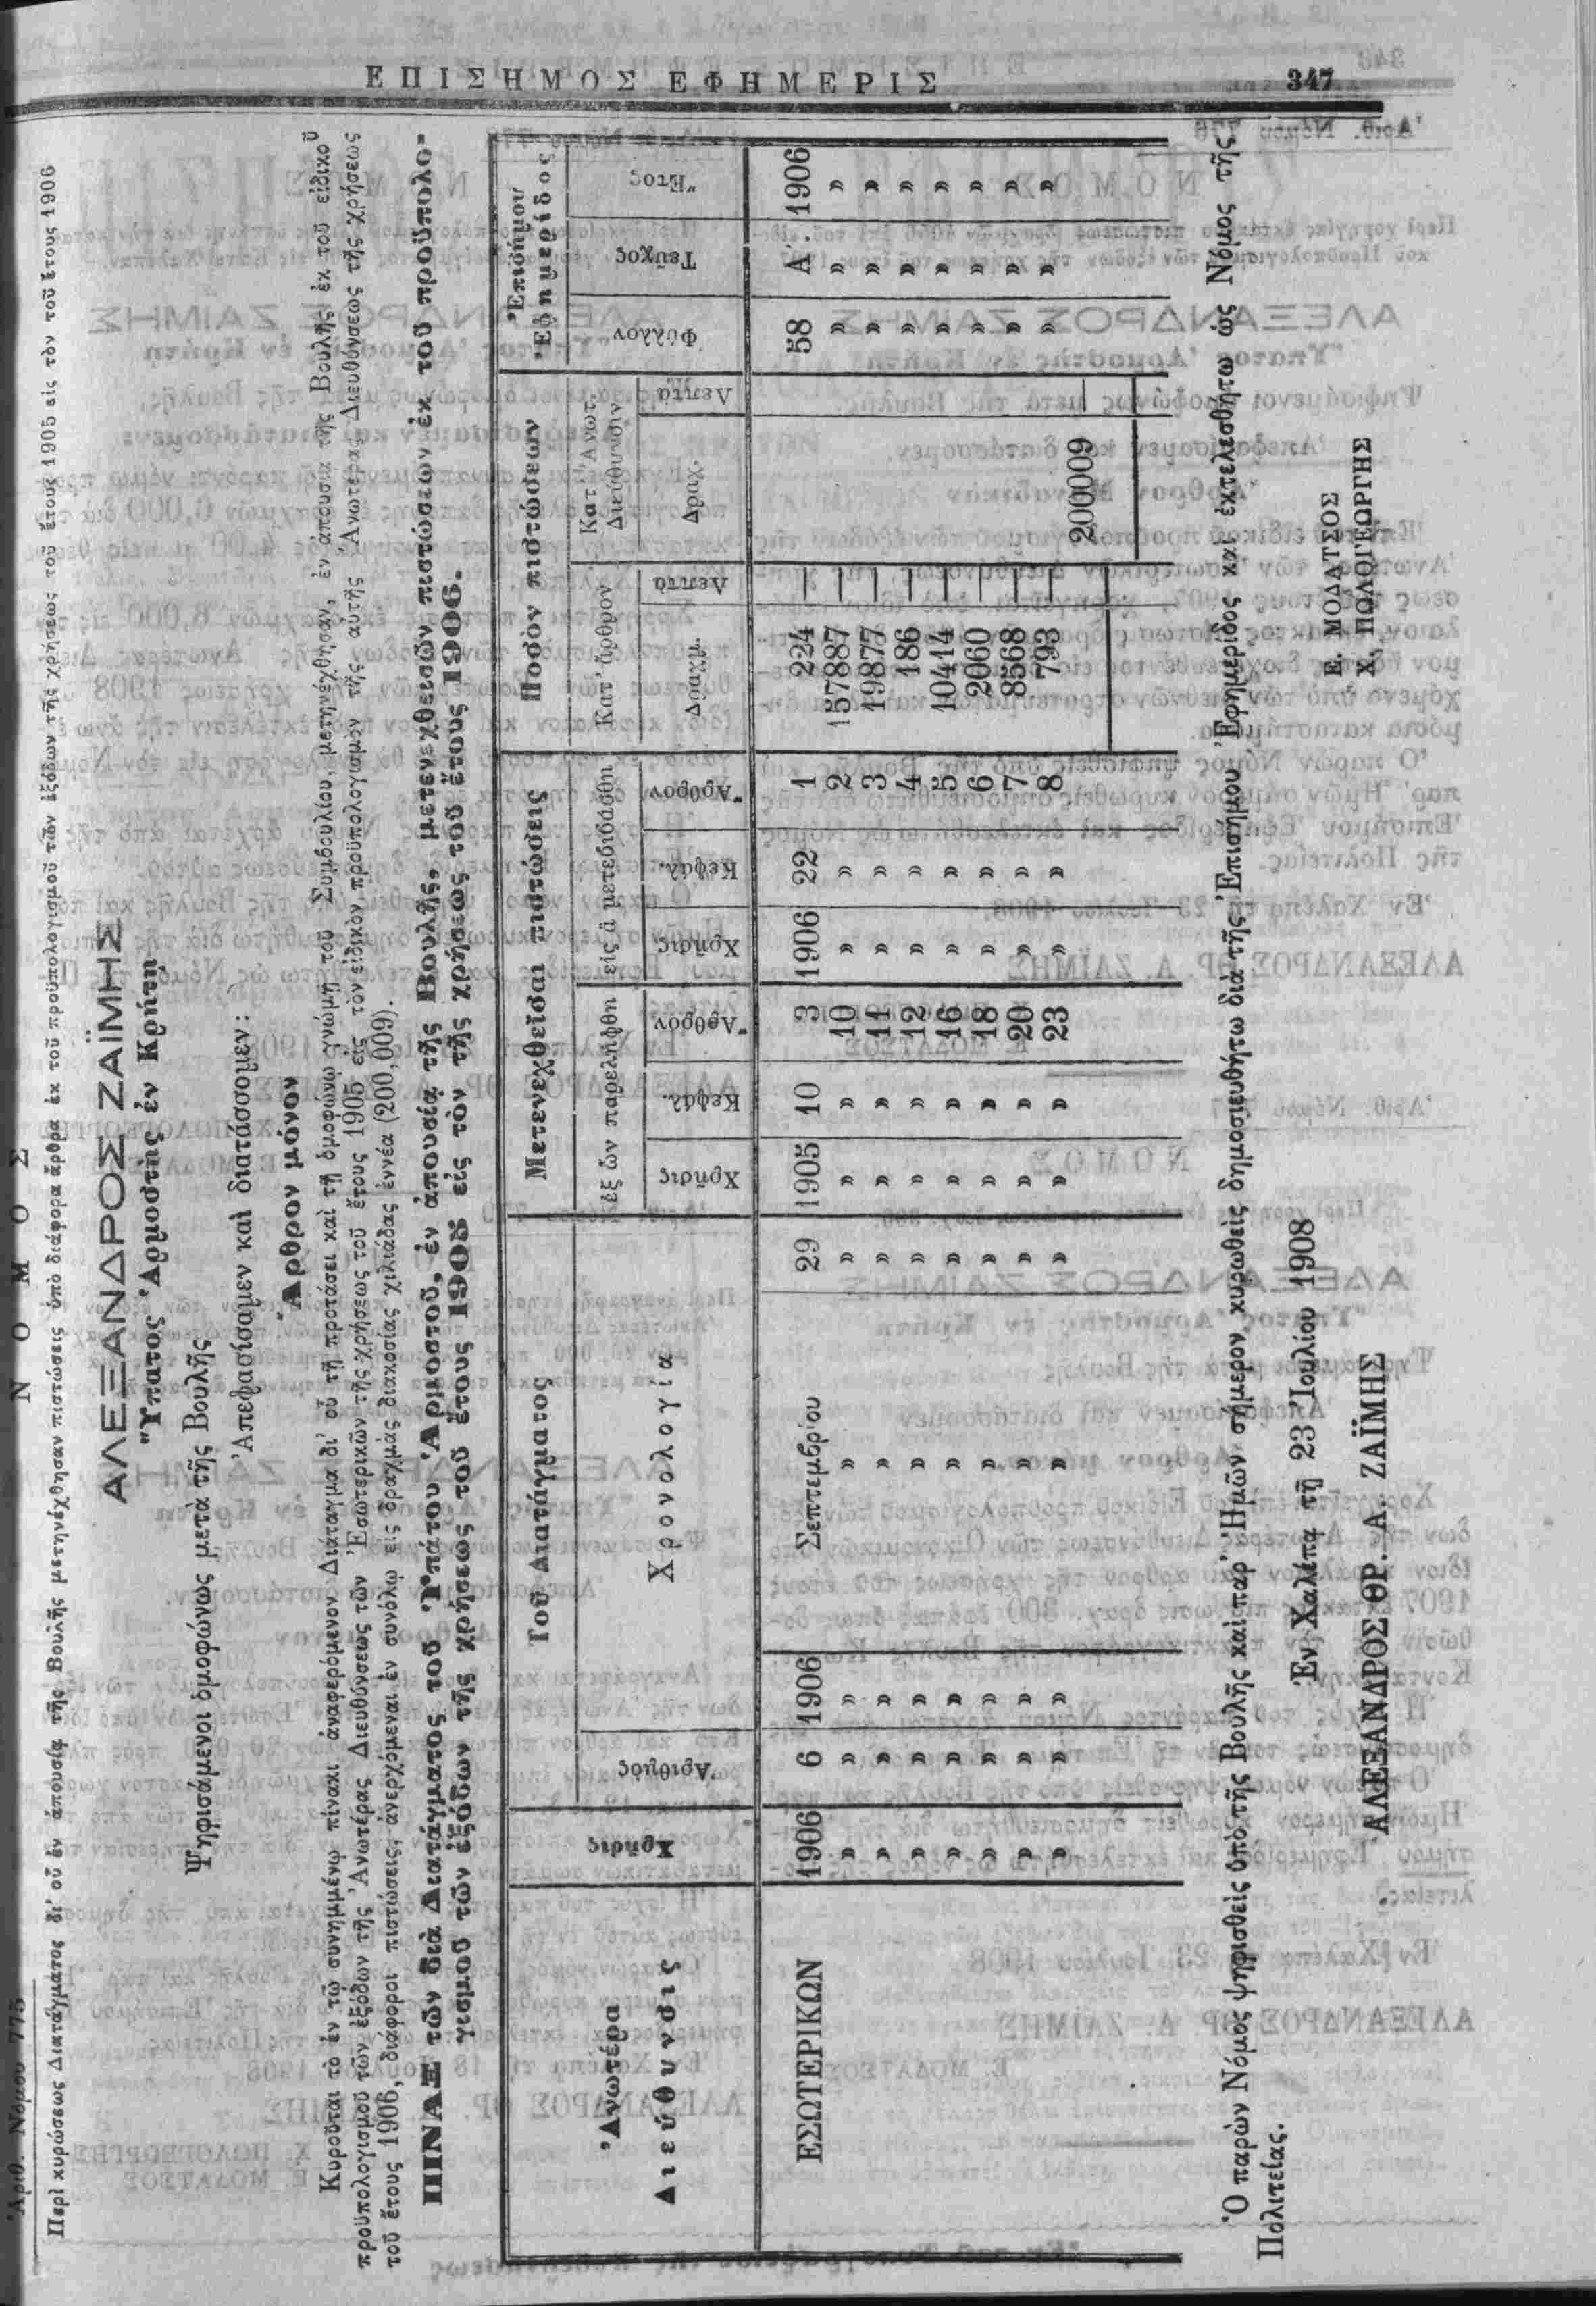 ΕΠΙΣΗΜΟΣ ΕΦΗΜΕΡΙΣ 347
Ἀριθ. Νόμου 775
ΝΟΜΟΣ
Περὶ κυρώσεως Διατάγματος δι' οὗ ἐν ἀπουσίᾳ τῆς Βουλῆς μετηνέχθησαν πιστώσεις ὑπὸ διάφορα ἄρθρα ἐκ τοῦ προϋπολογισμοῦ τῶν ἐξόδων τῆς χρήσεως τοῦ ἔτους 1905 εἰς τὸν τοῦ ἔτους 1906
ΑΛΕΞΑΝΔΡΟΣ ΖΑΪΜΗΣ
Ὕπατος Ἁρμοστὴς ἐν Κρήτῃ
Ψηφισάμενοι ὁμοφώνως μετὰ τῆς Βουλῆς
Ἀπεφασίσαμεν καὶ διατάσσομεν:
Ἄρθρον μόνον
Κυροῦται τὸ ἐν τῷ συνημμένῳ πίνακι ἀναφερόμενον Διάταγμα δι' οὗ τῇ προτάσει καὶ τῇ ὁμοφώνῳ γνώμῃ τοῦ Συμβουλίου, μετηνέχθησαν, ἐν ἀπουσίᾳ τῆς Βουλῆς ἐκ τοῦ εἰδικοῦ
προϋπολογισμοῦ τῶν ἐξόδων τῆς Ἀνωτέρας Διευθύνσεως τῶν Ἐσωτερικῶν τῆς χρήσεως τοῦ ἔτους 1905 εἰς τὸν εἰδικὸν προϋπολογισμὸν τῆς αὐτῆς Ἀνωτέρας Διευθύνσεως τῆς χρήσεως
τοῦ ἔτους 1906, διάφοροι πιστώσεις, ἀνερχόμεναι ἐν συνόλῳ εἰς δραχμὰς διακοσίας χιλιάδας ἐννέα (200,009).
ΠΙΝΑΞ τῶν διὰ Διατάγματος τοῦ Ὑπάτου Ἁρμοστοῦ, ἐν ἀπουσίᾳ τῆς Βουλῆς, μετενεχθεισῶν πιστώσεων ἐκ τοῦ προϋπολο-
γισμοῦ τῶν ἐξόδων τῆς χρήσεως τοῦ ἔτους 1905 εἰς τὸν τῆς χρήσεως τοῦ ἔτους 1906.
Ἀνωτέρα Διεύθυνσις
Χρῆσις
Τοῦ Διατάγματος
Ἀριθμὸς
Χρονολογία
Μετενεχθεῖσαι πιστώσεις
ἐξ ὧν παρελήφθη
εἰς ἃ μετεβιβάσθη
Χρῆσις Κεφάλ. Ἄρθρον Χρῆσις Κεφάλ. Ἄρθρον
Ποσὸν πιστώσεων
Κατ' ἄρθρον
Κατ' Ἀνωτ. Διεύθυνσιν
Δραχμ. Λεπτὰ Δραχ. Λεπτὰ
Ἐπισήμου Ἐφημερίδος
Φύλλον Τεῦχος Ἔτος
ΕΣΩΤΕΡΙΚΩΝ 1906 6 1906 Σεπτεμβρίου 29 1905 10 3 1906 22 1 224 — 58 Α΄. 1906
» » » » » » » 10 » » 2 157887 — » » »
» » » » » » » 11 » » 3 19877 — » » »
» » » » » » » 12 » » 4 186 — » » »
» » » » » » » 16 » » 5 10414 — » » »
» » » » » » » 18 » » 6 2060 — » » »
» » » » » » » 20 » » 7 8568 — » » »
» » » » » » » 23 » » 8 793 — » » »
200009 —
Ὁ παρὼν Νόμος ψηφισθεὶς ὑπὸ τῆς Βουλῆς καὶ παρ' Ἡμῶν σήμερον κυρωθεὶς δημοσιευθήτω διὰ τῆς Ἐπισήμου Ἐφημερίδος καὶ ἐκτελεσθήτω ὡς Νόμος τῆς
Πολιτείας.
Ἐν Χαλέπᾳ τῇ 23 Ἰουλίου 1908
ΑΛΕΞΑΝΔΡΟΣ ΘΡ. Α. ΖΑΪΜΗΣ
Ε. ΜΟΔΑΤΣΟΣ
Χ, ΠΩΛΟΓΕΩΡΓΗΣ